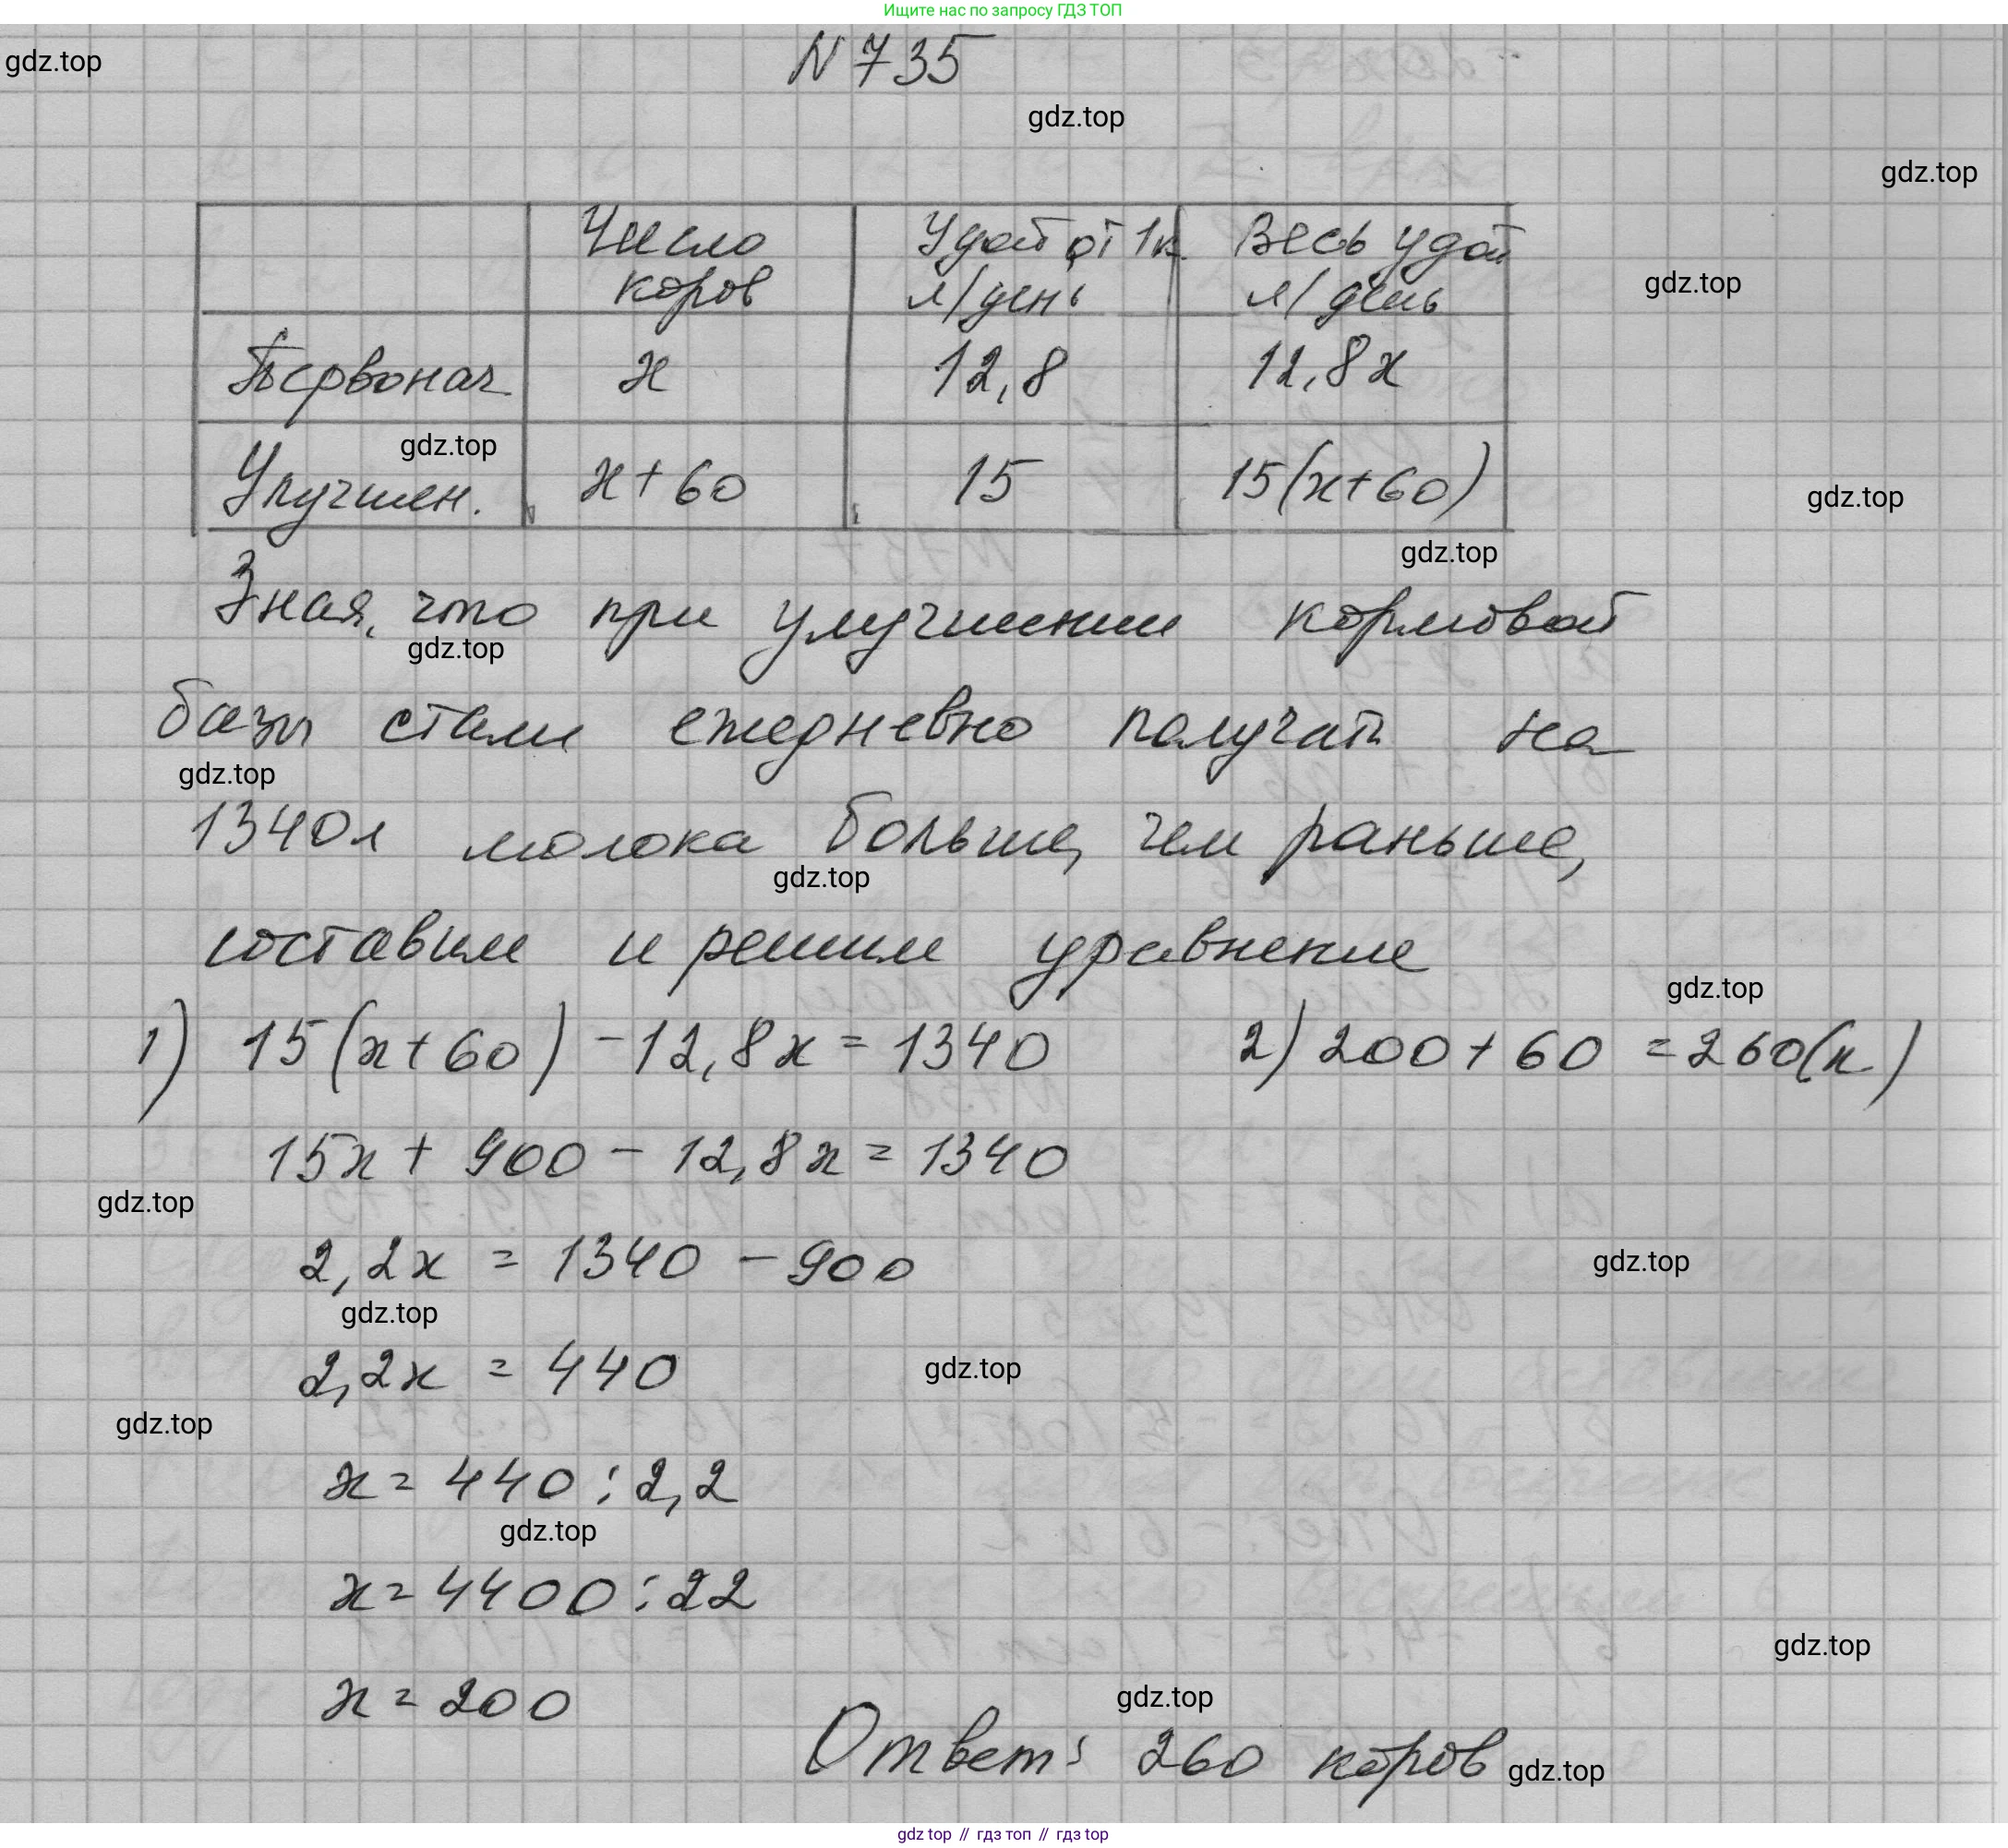 Ищите нас по запросу ГДЗ ТОП
N 735
gdz.top
gdz.top
gdz.top
Число коров | Удой от 1к. л/день | Весь удой л/день
gdz.top
Первонач. | x | 12,8 | 12,8x
gdz.top
Улучшен. | x + 60 | 15 | 15(x+60)
gdz.top
gdz.top
Зная, что при улучшении кормовой
gdz.top
базы стали ежедневно получать на
gdz.top
1340л молока больше, чем раньше,
gdz.top
составим и решим уравнение
gdz.top
1) 15(x+60) - 12,8x = 1340
2) 200 + 60 = 260(к.)
15x + 900 - 12,8x = 1340
gdz.top
2,2x = 1340 - 900
gdz.top
gdz.top
2,2x = 440
gdz.top
gdz.top
x = 440 : 2,2
gdz.top
x = 4400 : 22
gdz.top
x = 200
gdz.top
Ответ: 260 коров
gdz.top
gdz top // гдз топ // gdz top